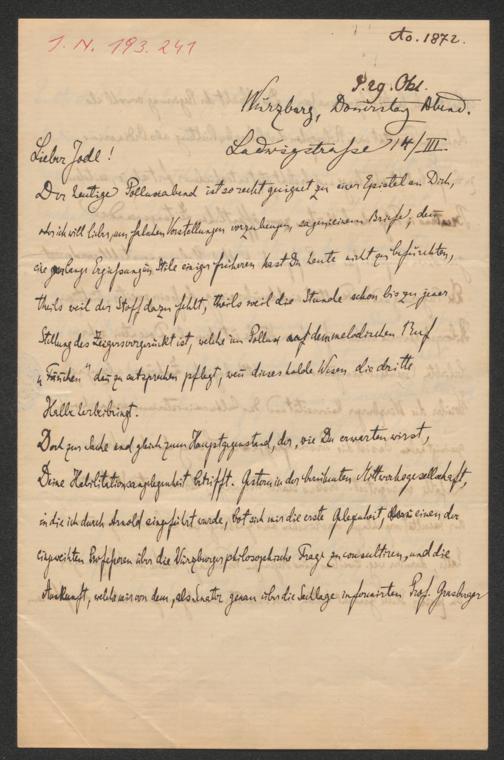 J. N. 193.241
Ao. 1872.
P. 29. Okt.
Würzburg, Donnerstag Abend.
Ludwigstrasse 14/III.
Lieber Jodl!
Der heutige Polluxabend ist so recht geeignet zu einer Epistel an Dich,
oder ich will lieber, um falschen Vorstellungen vorzubeugen, sagen einem Briefe; denn
eine Ergüssung im Stile einiger früheren hast Du heute nicht zu befürchten,
theils weil der Stoff dazu fehlt, theils weil die Stunde schon bis zu jener
Stellung des Zeigers vorgerückt ist, welche im Pollux auf den melodischen Ruf
" " zu entsprechen pflegt, wenn dieses holde Wesen die dritte
Halbe herbeibringt.
Doch zur Sache und gleich zum Hauptgegenstand, der, wie Du erwarten wirst,
Deine Habilitationsangelegenheit betrifft. Gestern in der berühmten Mittwochsgesellschaft,
in die ich durch Arnold eingeführt wurde, bot sich mir die erste Gelegenheit, einen der
eingeweihten Professoren über die Würzburger philosophische Frage zu consultiren, und die
Auskunft, welche mir von dem, als Senator genau über die Sachlage informirten Prof. Grasberger